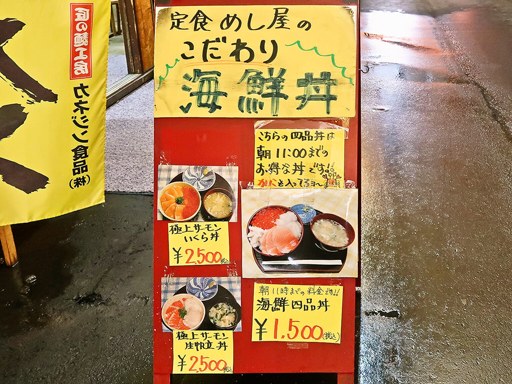 定食めし屋の
こだわり
海鮮丼
こちらの四品丼は
朝11:00までの
お得な丼です!!
極上サーモン
いくら丼
¥2,500(税込)
朝11時までの料金です!!
海鮮四品丼
¥1,500(税込)
極上サーモン
生帆立丼
¥2,500(税込)
匠の麺工房
カネジン食品㈱